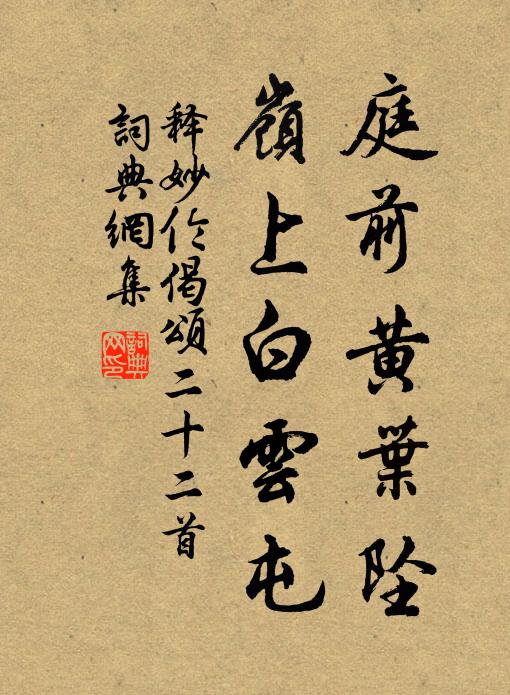 庭前黃葉墜
嶺上白雲屯
释妙伦偈頌二十二首
詞典網集
詞典网印